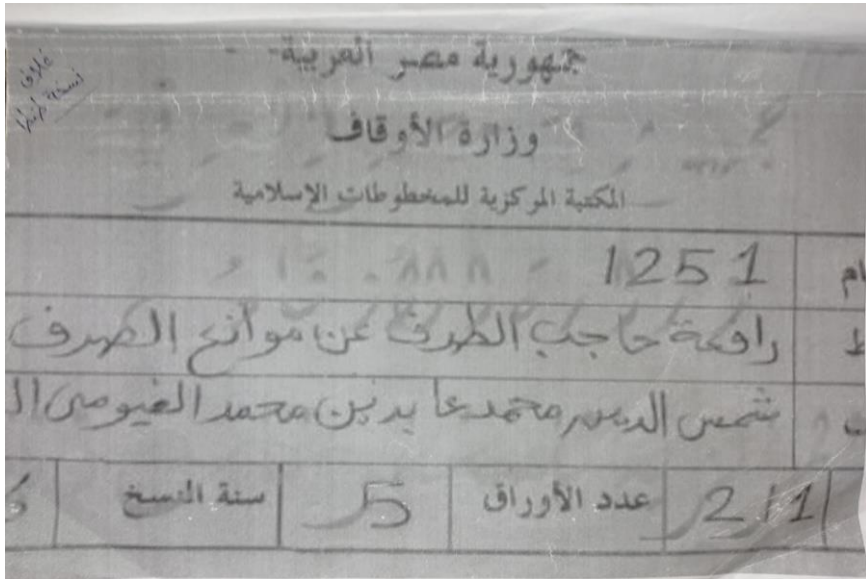 غلاف
نسخة طنطا
جمهورية مصر العربية
وزارة الأوقاف
المكتبة المركزية للمخطوطات الإسلامية
1251
رافعة حاجب الطرف عن موانع الصرف
شمس الدين محمد عا بد بن محمد الفيومى
2/1 عدد الأوراق 5 سنة النسخ